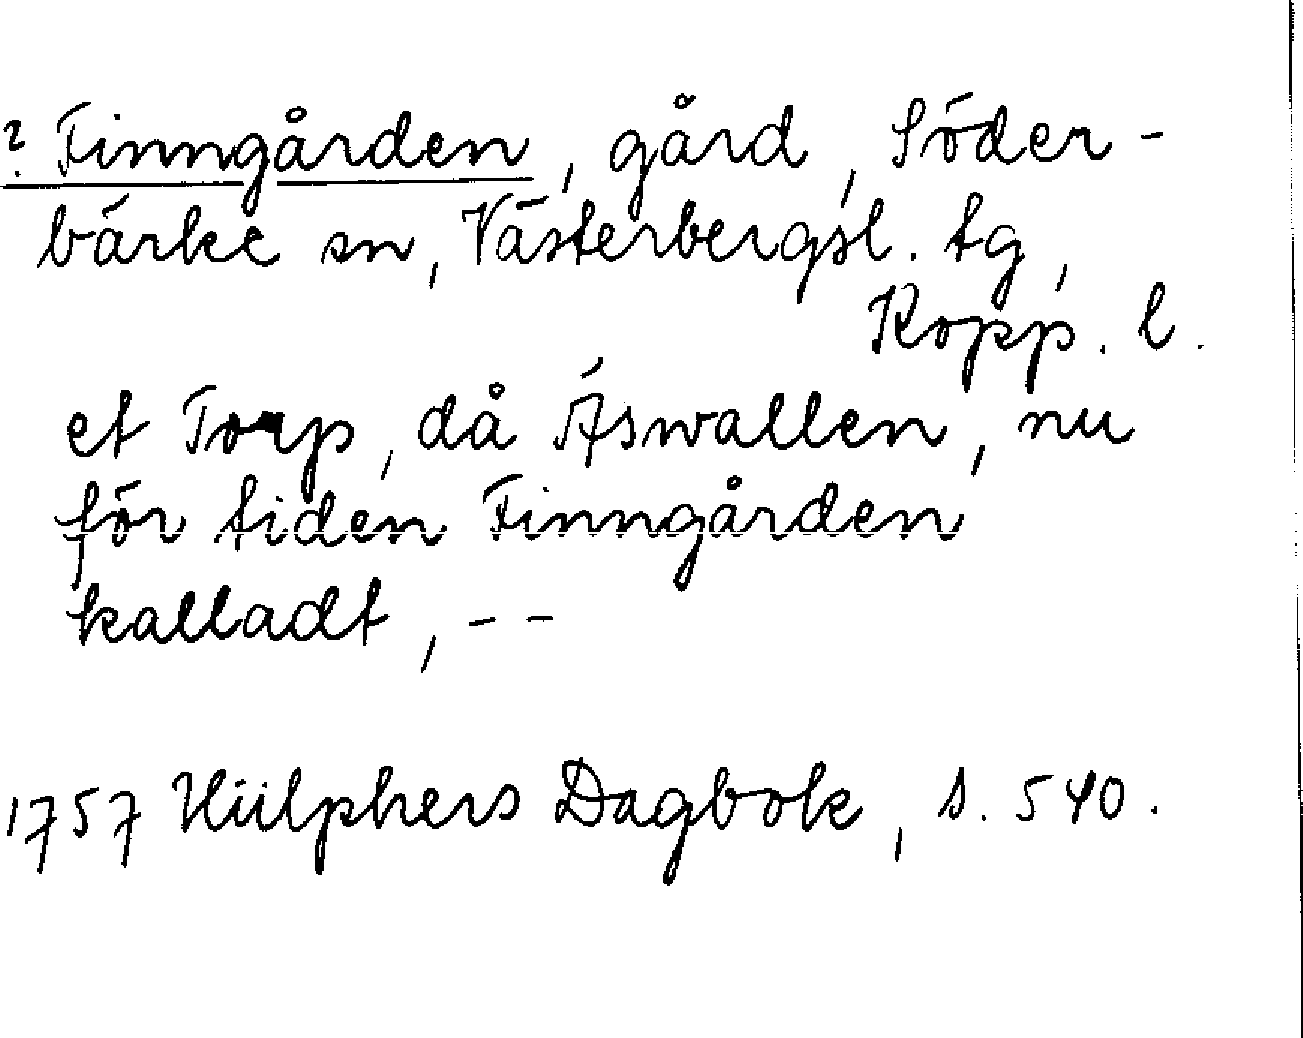 ? Finngården, gård, Söder-
bärke sn, Västerbergsl. tg,
Kopp. l.
et Torp, då Äswallen, nu
för tiden Finngården
kalladt, --
1757 Hülphers Dagbok, s. 540.